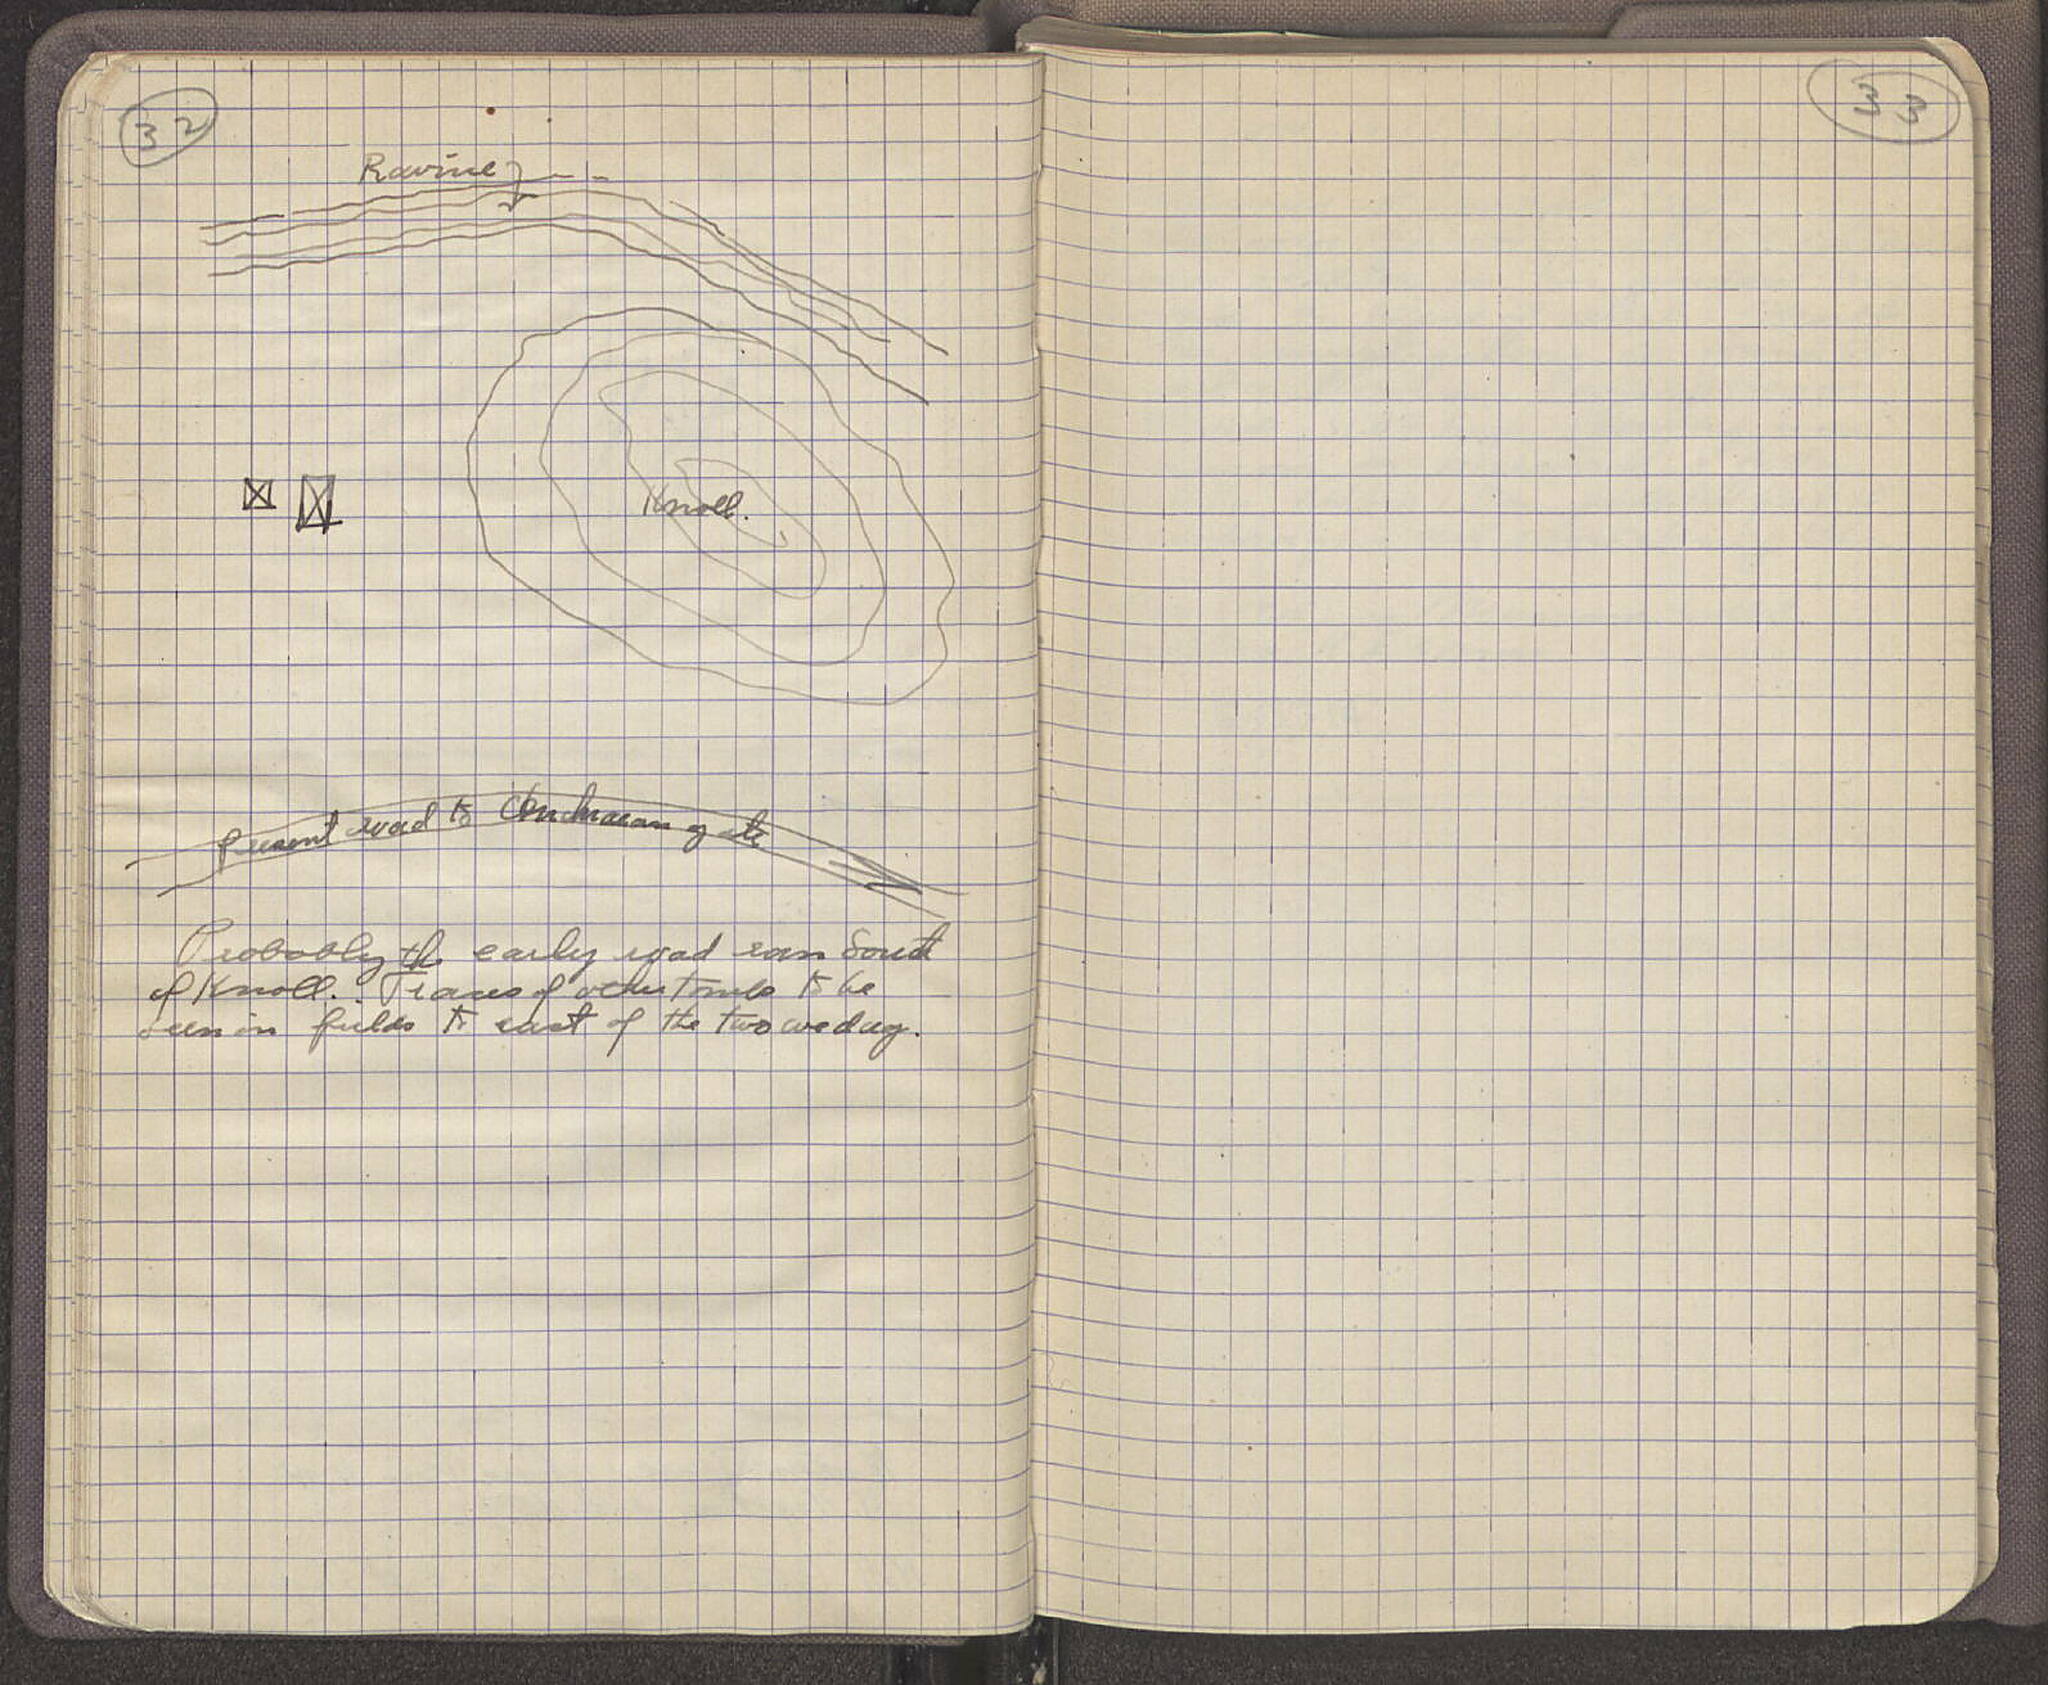 32
33
Ravine
Knoll.
Present road to Cenchraean gate
Probably the early road ran South
of Knoll. Traces of other tombs to be
seen in fields to east of the two we dug.